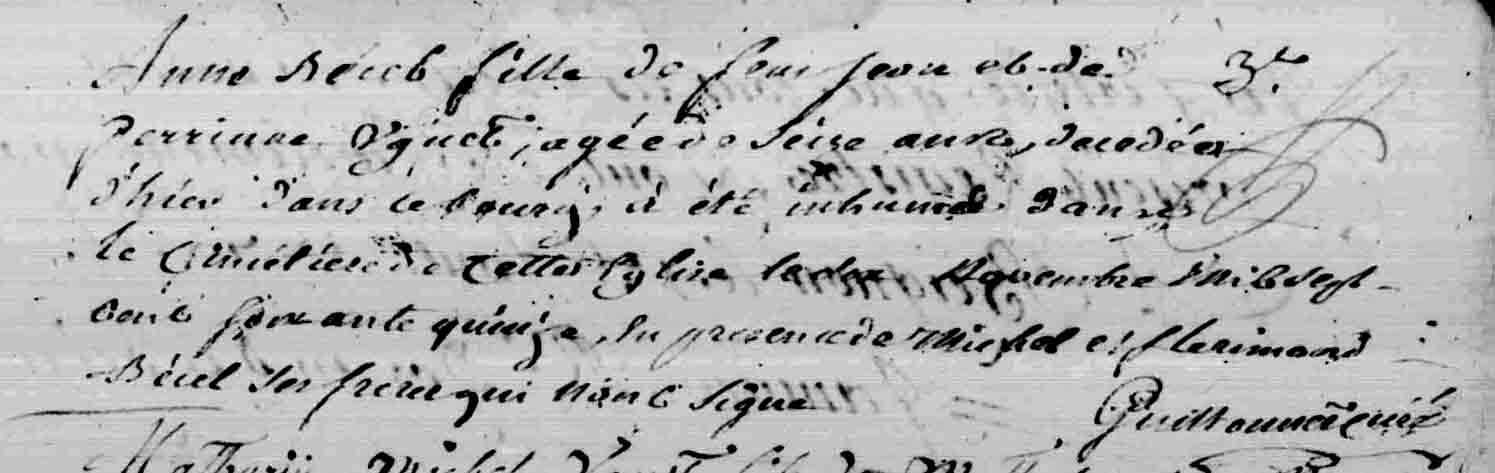 Anne Béicel fille de feu Jean et de 3te
Perrinne agée de séize ans, decedée
d'hier dans le bourg, à été inhumée dans
le Cimétiere de cette Eglise le dix Novembre Mil Sept
cent soixante quinze, En presence de Michel et florimond
Béicel ses freres qui n'ont signé
Guillonneau curé
Mathurin Michel